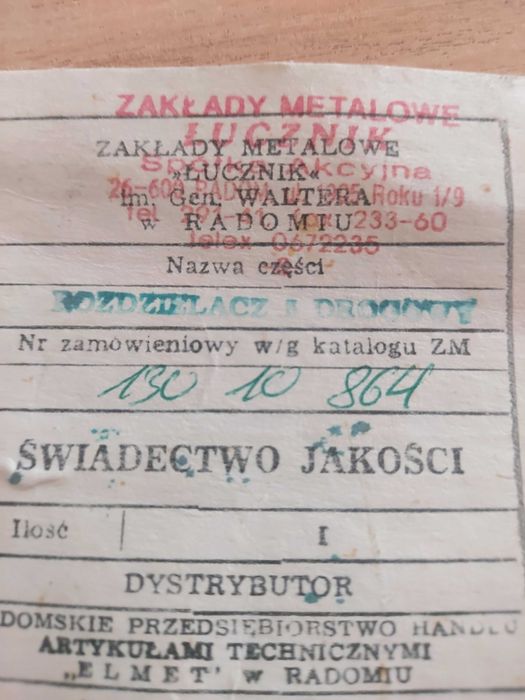 ZAKŁADY METALOWE
ŁUCZNIK
Spółka Akcyjna
26-600 RADOM, 1905 Roku 1/9
tel 291-51 fax 233-60
telex 0672235
ZAKŁADY METALOWE
„ŁUCZNIK“
im. Gen. WALTERA
w RADOMIU
Nazwa części
ROZDZIELACZ 5 DROGOWY
Nr zamówieniowy w/g katalogu ZM
130 10 864
ŚWIADECTWO JAKOŚCI
Ilość 1
DYSTRYBUTOR
DOMSKIE PRZEDSIĘBIORSTWO HANDLU
ARTYKUŁAMI TECHNICZNYMI
„ELMET" w RADOMIU